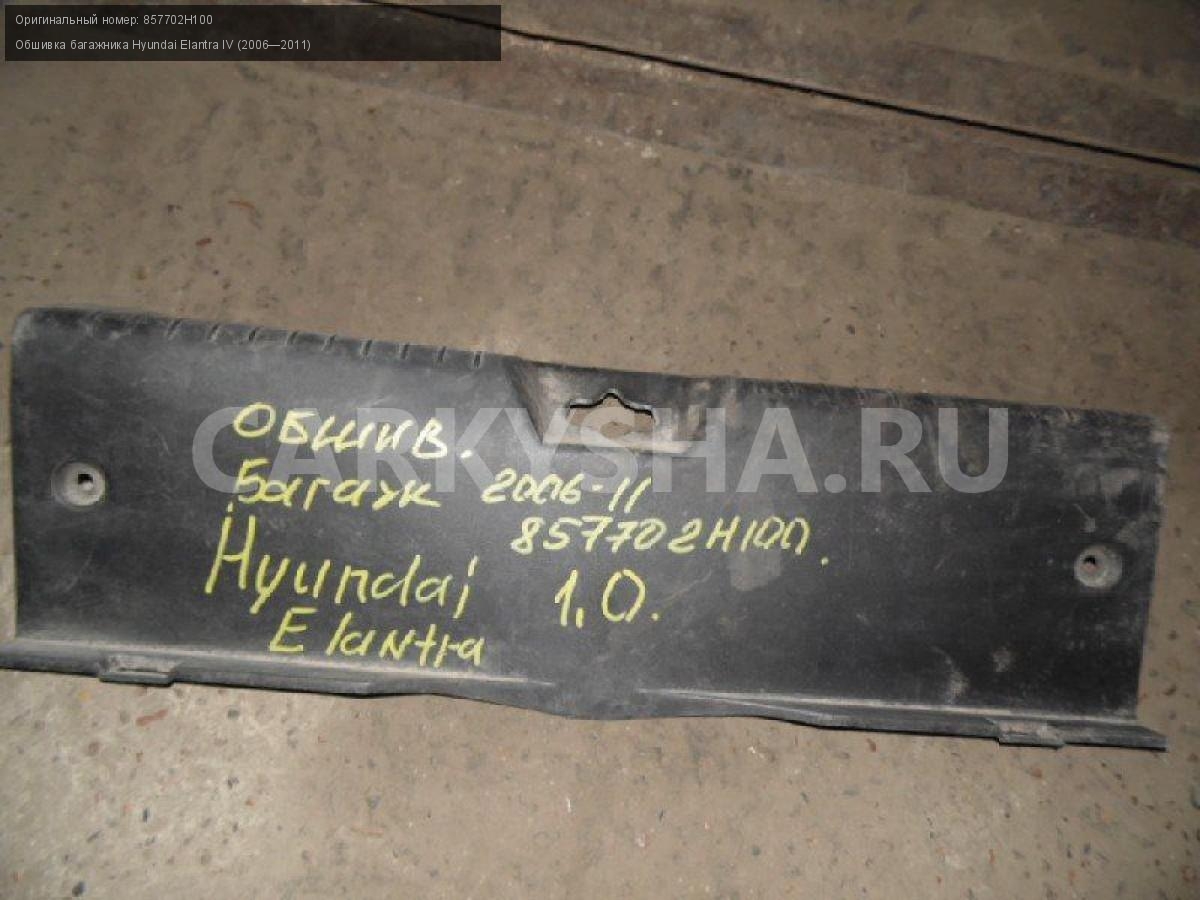 Оригинальный номер: 857702H100
Обшивка багажника Hyundai Elantra IV (2006—2011)
CARKYSHA.RU
Обшив.
Багаж 2006-11
857702H100.
Hyundai 1,0.
Elantra